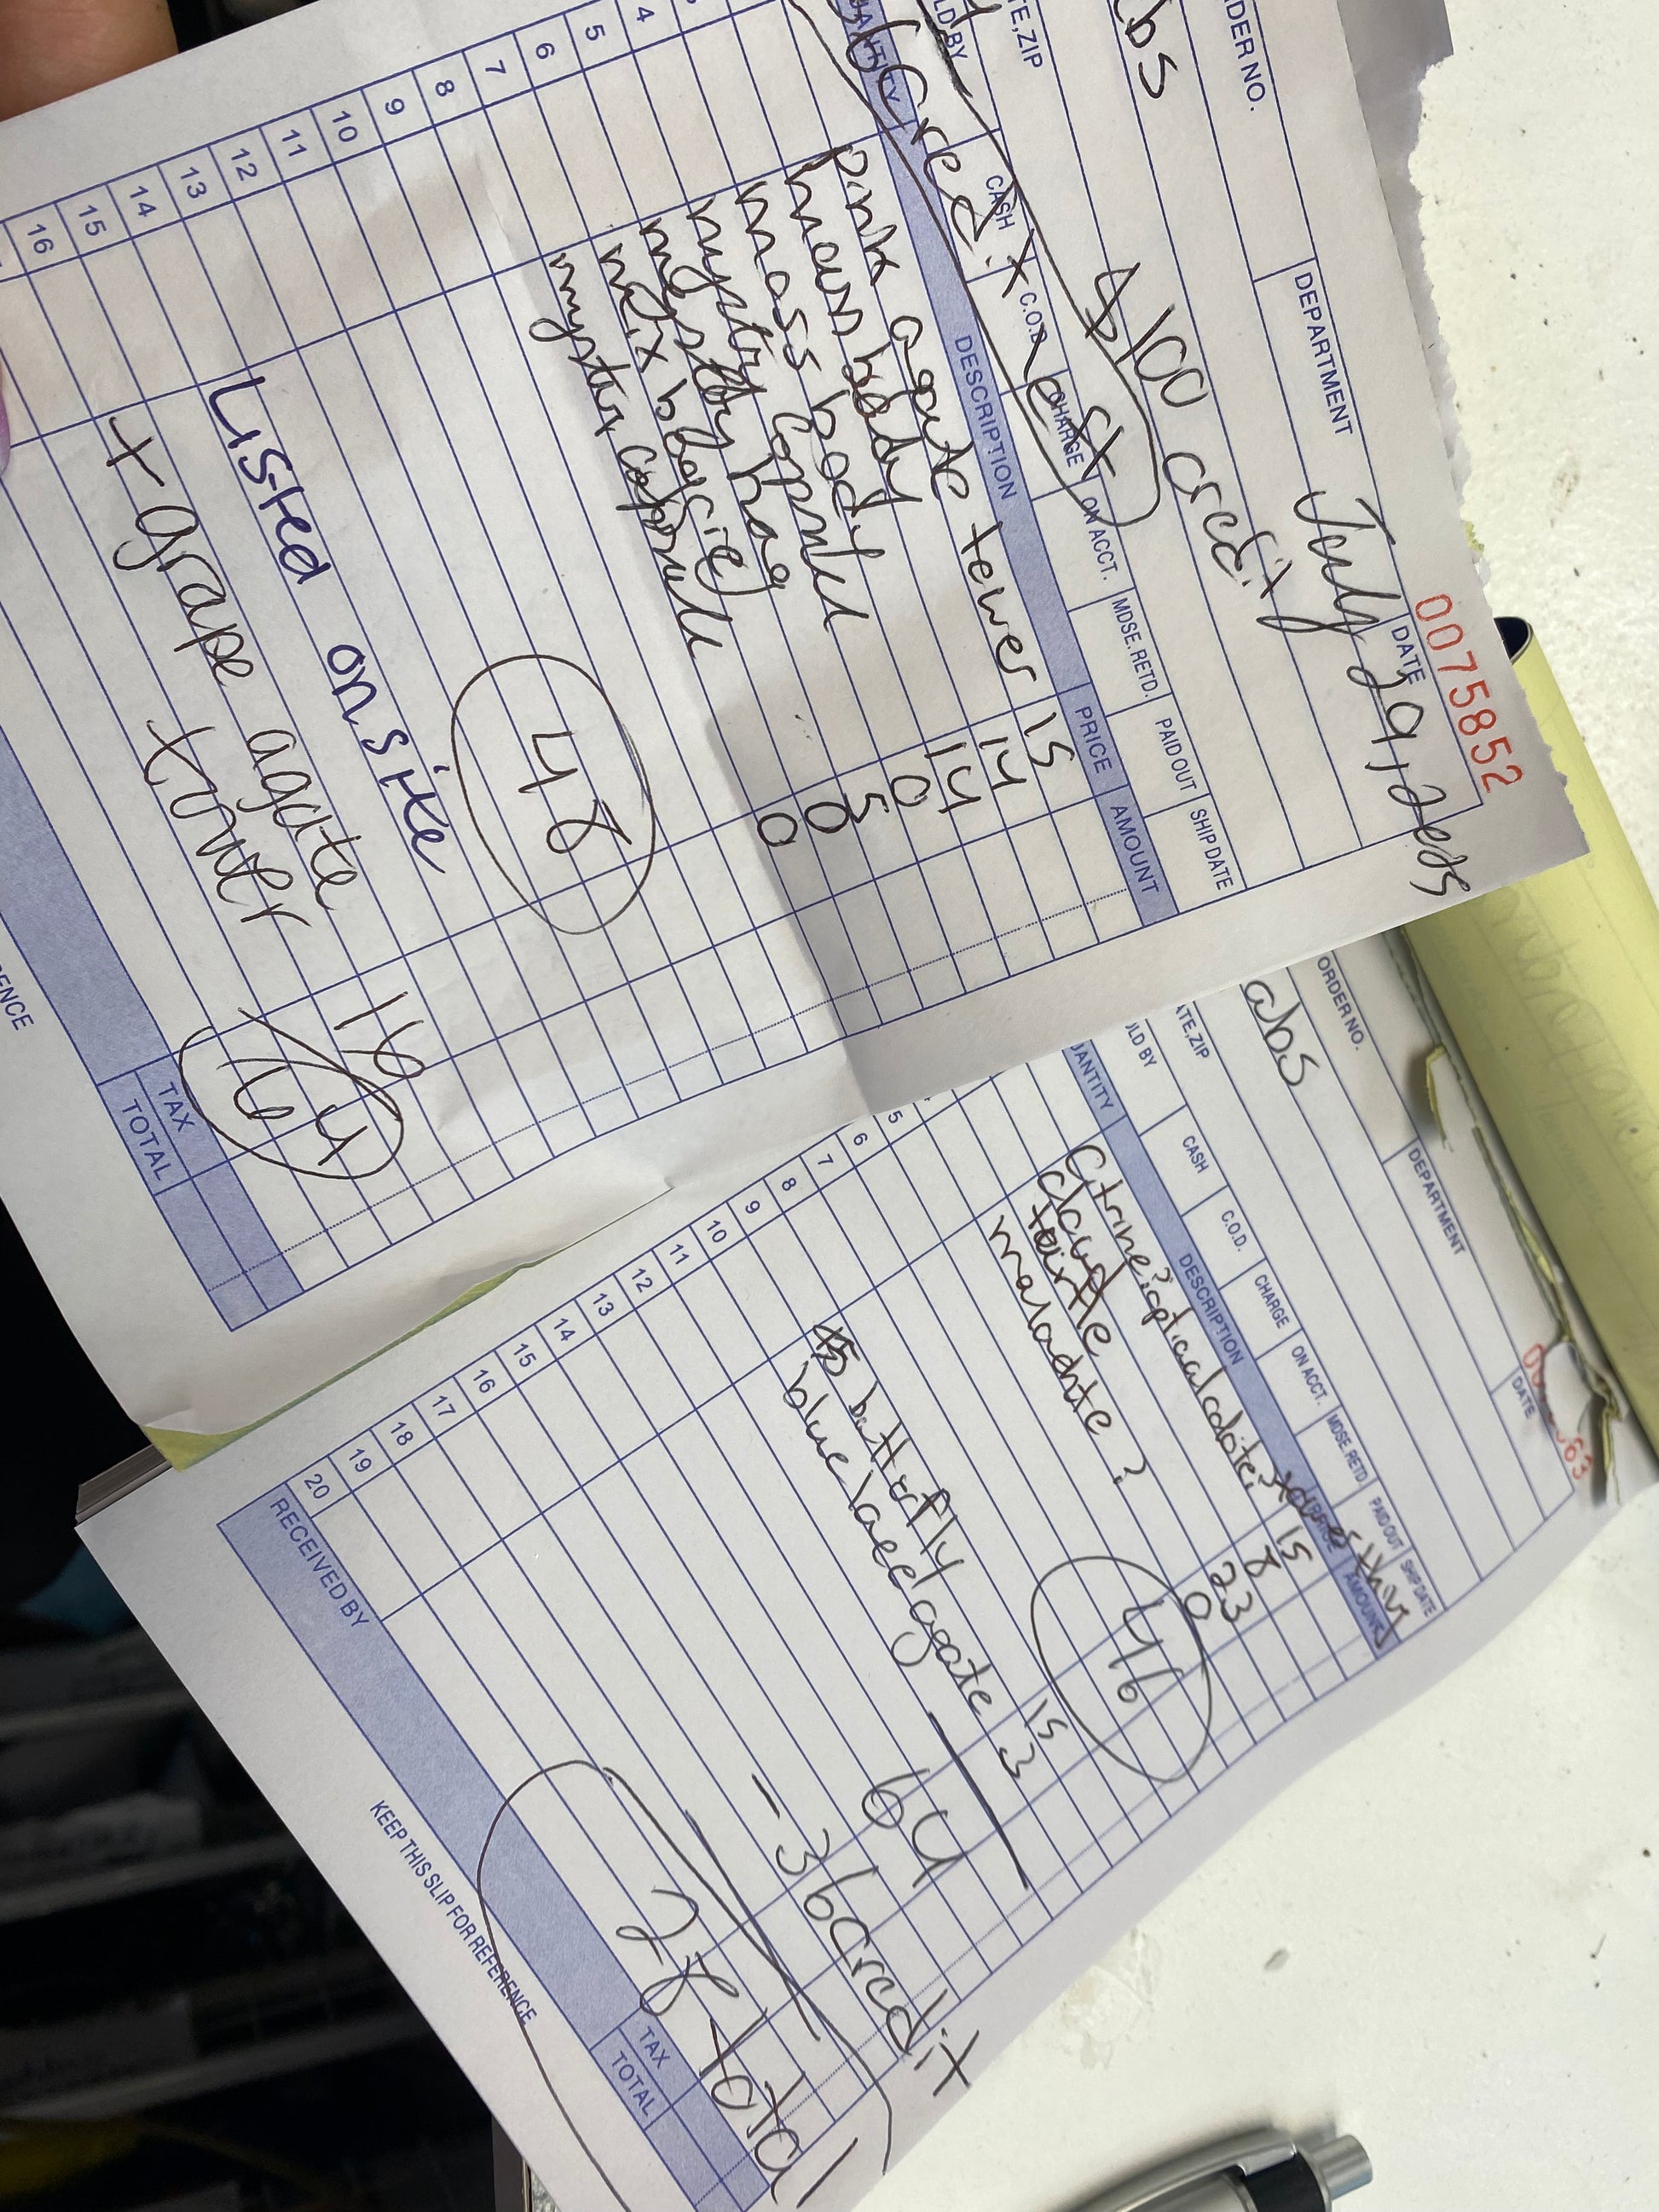 0075852
DATE
July 29, 2025
DER NO.
DEPARTMENT
bs
$100 credit
TE, ZIP
LD BY
CASH
C.O.D.
CHARGE
ON ACCT.
MDSE. RETD.
PAID OUT
SHIP DATE
36 Credit left
ANTITY
DESCRIPTION
PRICE
AMOUNT
pink agate tower 15
heun body 14
moss body 14
mystry copsule 0
mystry bag 5
mix bag (sie) 0
mystery capsule 0
4
5
6
7
8
9
10
11
12
13
14
15
16
48
Listed on site
+ grape agate 16
tower
64
TAX
TOTAL
ENCE
63
DATE
ORDER NO.
DEPARTMENT
abs
ATE, ZIP
LD BY
CASH
C.O.D.
CHARGE
ON ACCT.
MDSE. RETD
PAID OUT
SHIP DATE
UANTITY
DESCRIPTION
PRICE
AMOUNT
Ctrine? optical calcite? 15
8
turtle 23
malachite? 0
46
butterfly 15
blue laced agate 3
64
-36 Credit
28 total
5
6
7
8
9
10
11
12
13
14
15
16
17
18
19
20
TAX
TOTAL
RECEIVED BY
KEEP THIS SLIP FOR REFERENCE